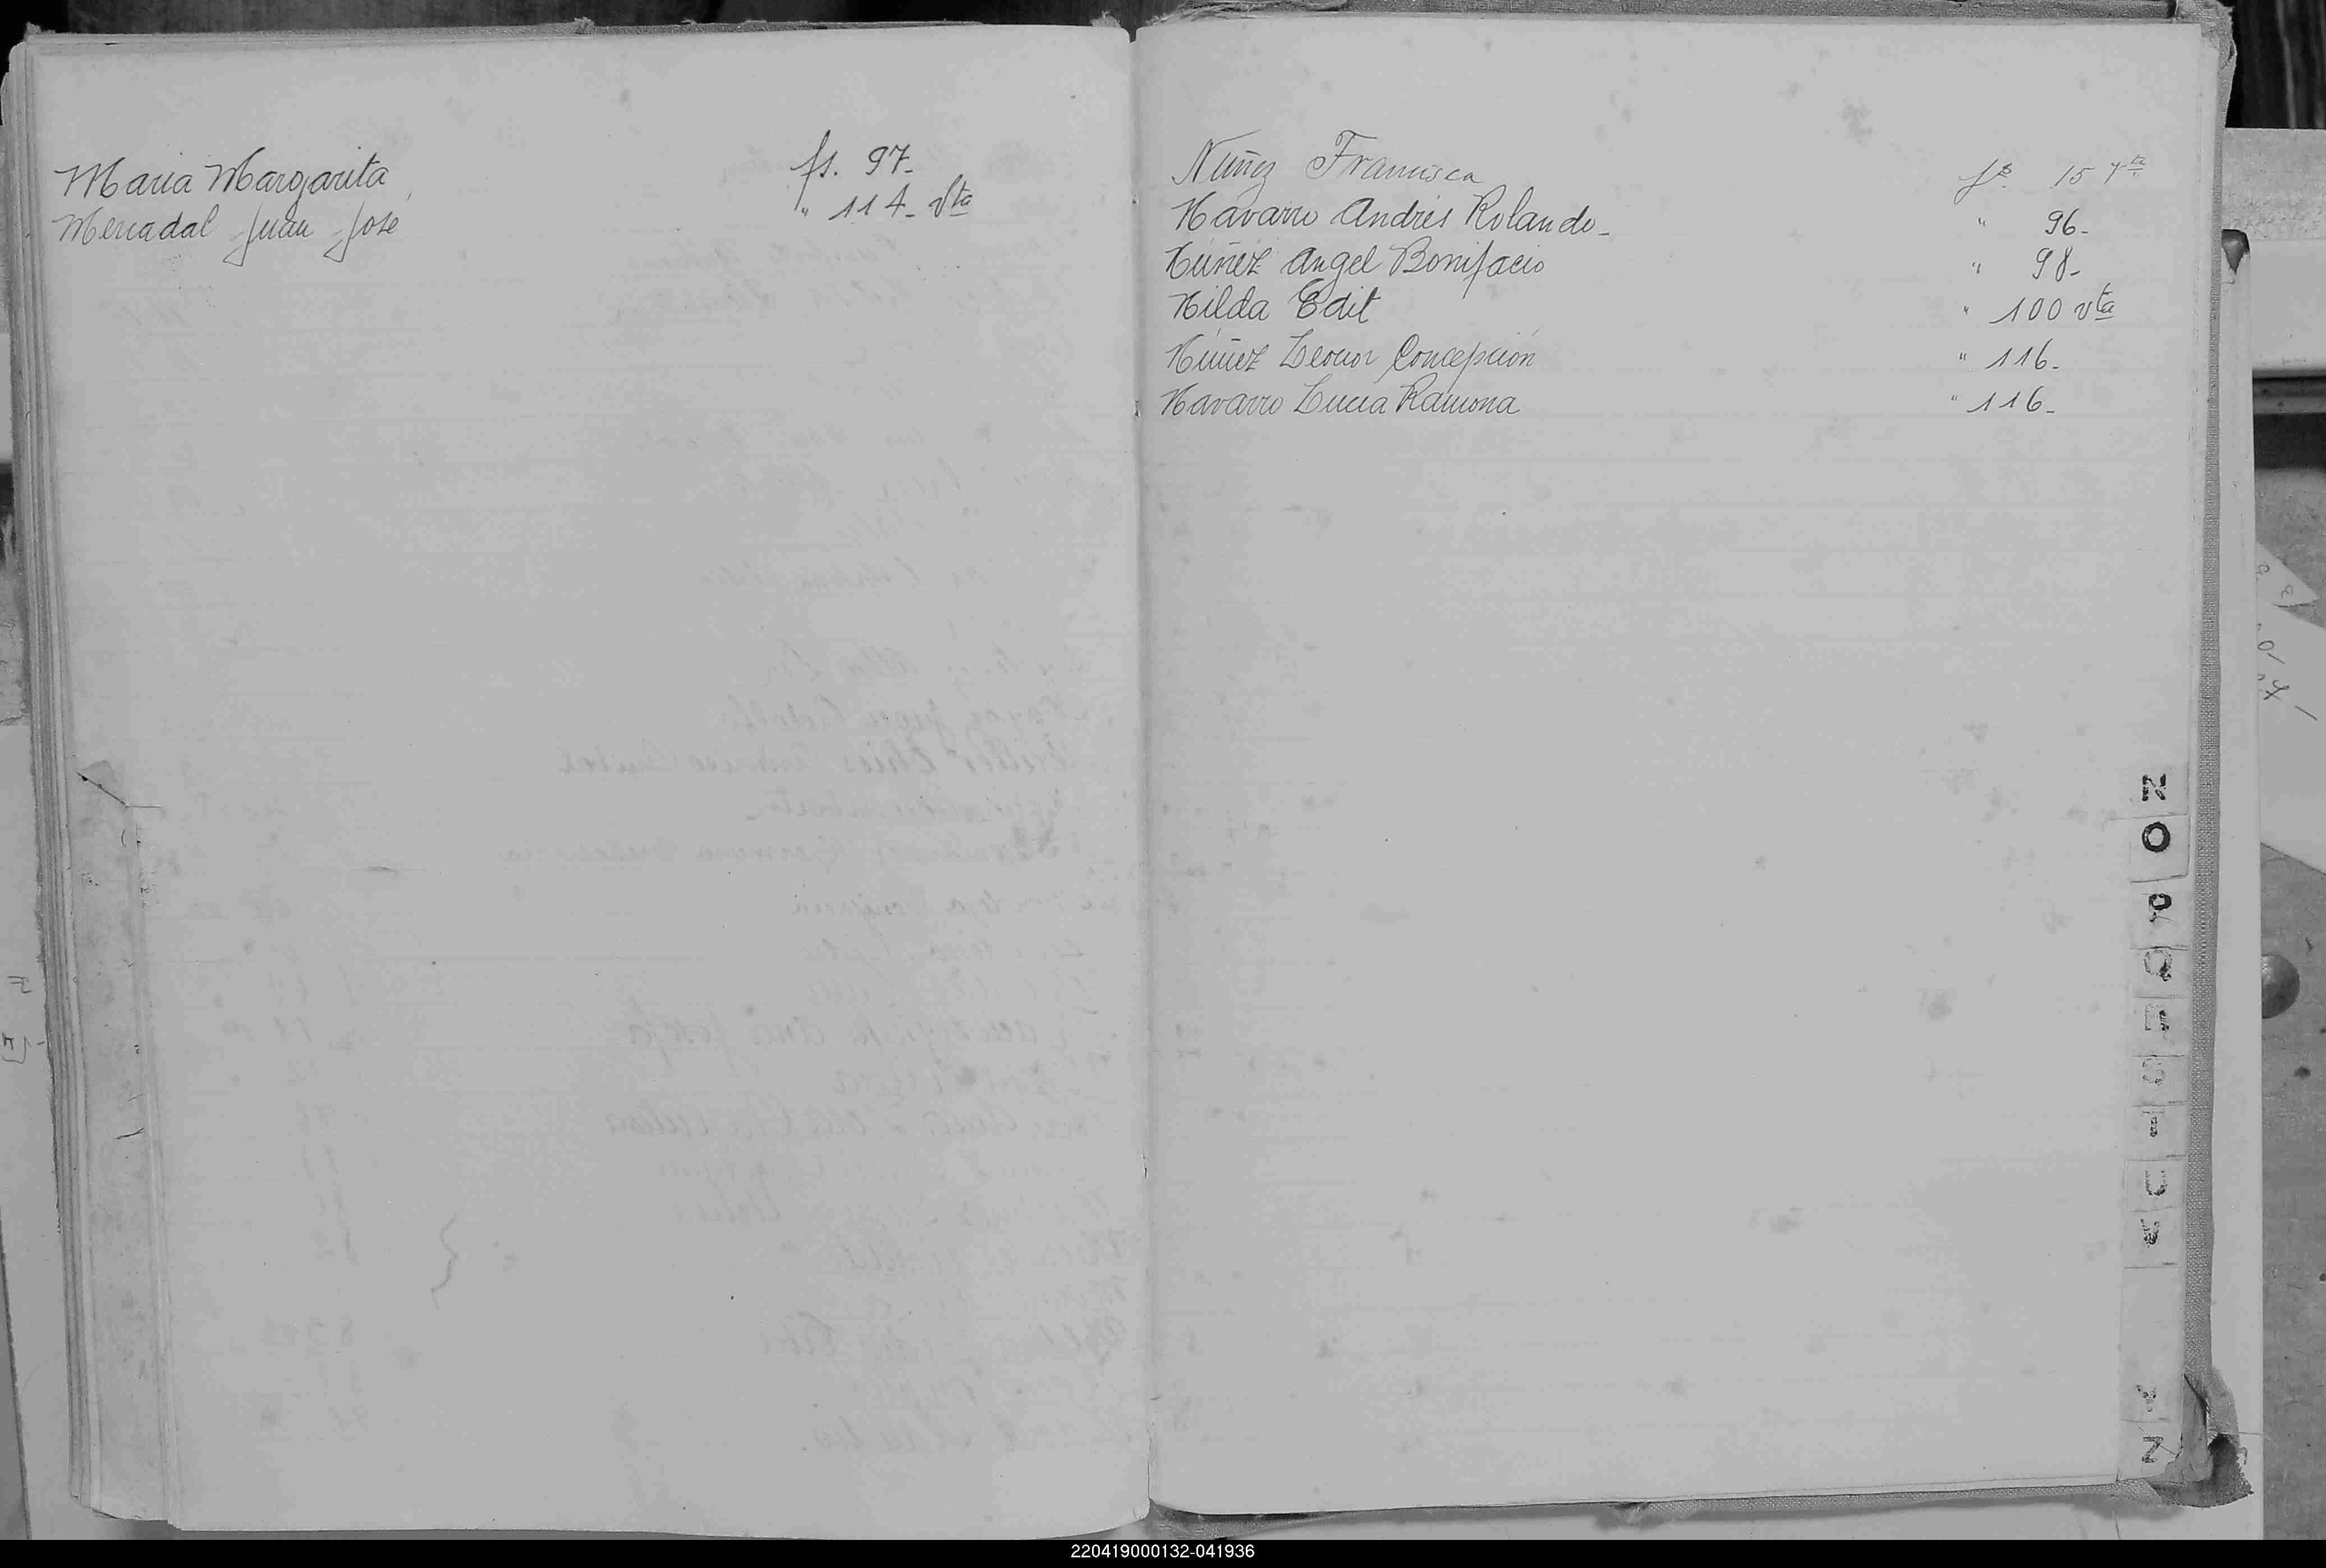 Maria Margarita fs. 97-
Mercadal Juan José " 114- vta
Nuñez Francisca fs. 15 vta
Navarro Andrés Rolando- " 96-
Núñez Angel Bonifacio " 98-
Nilda Edit " 100 vta
Núñez Leonor Concepción " 116-
Navarro Lucía Ramona " 116-
N
O
P
Q
R
S
T
U
V
Y
Z
220419000132-041936